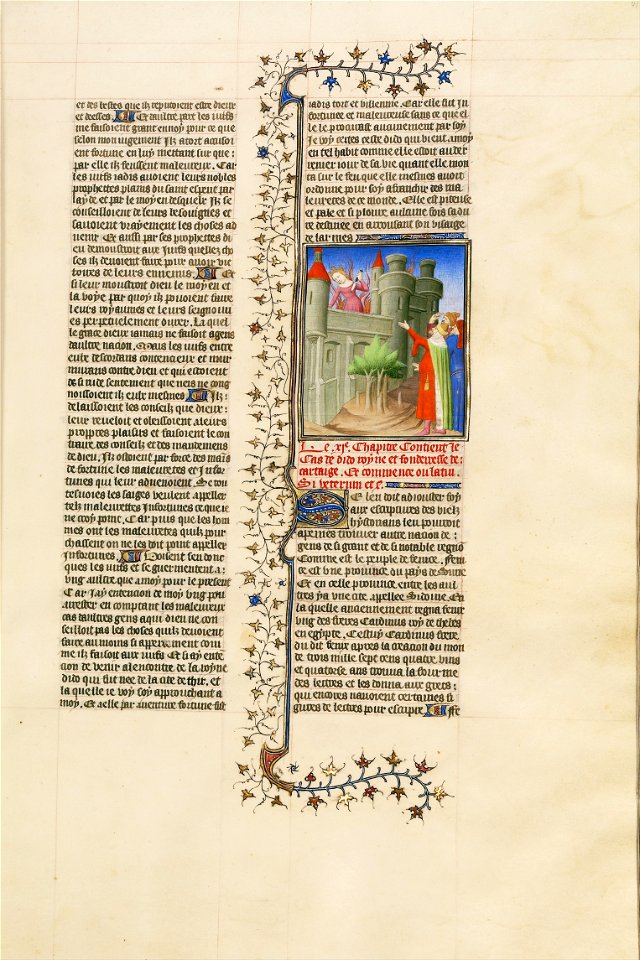 et des bestes que ilz reputoient estre dieux
et deesses. Et daultre part les iuifs
me faisoient grant ennoy pour ce que
selon mon iugement ilz atort acusoi
ent fortune en luy mettant sus que :
par elle ilz feussent maleureux. Car
les iuifs iadis auoient leurs nobles
prophettes plains du saint esperit par
layde et par le moyen desquelz ilz se
conseilloient de leurs besoingnes et
sauoient vrayement les choses ad
uenir. Et aussi par ses prophettes di
eu demoustroit aux iuifs quelles cho
ses ilz deuoient faire pour auoir vic
toires de leurs ennemis. Et
si leur moustroit dieu le moyen et
la voye par quoy ilz pouoient faire
leurs royaumes et leurs seignoui
es perpetuelement durer. La quel
le grace dieux iamais ne faisoit a gens
daultre nacion. Mais les iuifs entre
eulx descordans contencieux et mur
murans contre dieu et qui estoient
de si rude sentement que neis ne cong
noissoient ilz eulx mesmes Ilz :
delaissoient les conseilz que dieux :
leur reueloit et obeissoient a leurs
propres plaisirs et faisoient le con
traire des conseilz et des mandemens
de dieu. Ilz disoient par force des maulx
de fortune les maleuretes et infor
tunes qui leur aduenoient. Se tou
tesuoies les saiges veulent appeller
telz maleuretez infortunes ce que ie
ne croy point. Car puis que les hom
mes ont les maleuretez quilz pour
chassent on ne les doit point appeller
infortunes. Voisent sen donc
ques les iuifs et se guermentent a :
ung aultre que a moy pour le present
Car iay entencion de moy ung pou
arrester en comptant les maleureux
cas daultres gens a qui dieu ne con
seilloit pas les choses quilz deuoient
faire au moins si appertement com
me ilz faisoit aux iuifs. Et si ay enten
cion de venir alencontre de la royne
dido qui fut nee de la cite de thir. et
la quelle ie voy soy approuchant a
moy. Et a elle par auenture fortune fist
iadis tort et villennie. Car elle fut in
fortunee et maleureuse sans ce que el
le le procurast aucunement par soy
Je voy certes ceste dido qui vient a moy
en tel habit comme elle estoit au der
renier iour de sa vie quant elle mon
ta sur le feu que elle mesmes auoit
ordonne pour soy afranchir des ma
leuretes de ce monde. Elle est piteuse
et pale et si pleure aulcune fois sa du
re destinee en arrousant son visaige
de larmes
Le .xi.e Chapitre Contient le
Cas de dido royne et fonderesse de :
cartaige. Et commence ou latin.
Si veterum et c.
Se len doit adiouster foy
aux escriptures des vielz
hystorians len pourroit
apeines trouuer autre nacion de :
gens de si grant et de si notable regno
comme est le peuple de fenice. Feni
ce est une prouince du pays de Surie
Et en celle prouince entre les aul
tres y a une cite appellee Sidone. En
la quelle anciennement regna fenix
ung des freres Cadinus roy de thebes
en egypte. Cestuy Cardinus frere
du dit fenix apres la creacion du mon
de trois mille sept cens quatre vins
et quatorse ans trouua la fourme
des lettres et les donna aux grecs :
qui encores nauoient certaines fi
gures de lettres pour escripre Ffe